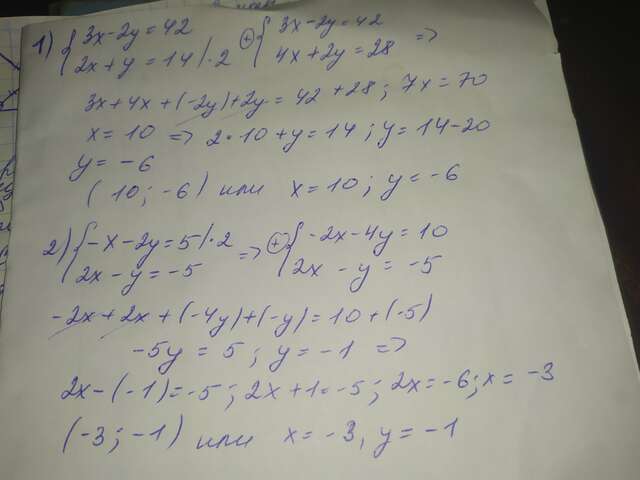 1) { 3x-2y=42 ⊕ { 3x-2y=42 =>
2x+y=14 |·2 4x+2y=28
3x+4x+(-2y)+2y=42+28; 7x=70
x=10 => 2·10+y=14; y=14-20
y=-6
(10; -6) или x=10; y=-6
2) { -x-2y=5 |·2 => ⊕ { -2x-4y=10
2x-y=-5 2x-y=-5
-2x+2x+(-4y)+(-y)=10+(-5)
-5y=5; y=-1 =>
2x-(-1)=-5; 2x+1=-5; 2x=-6; x=-3
(-3; -1) или x=-3, y=-1